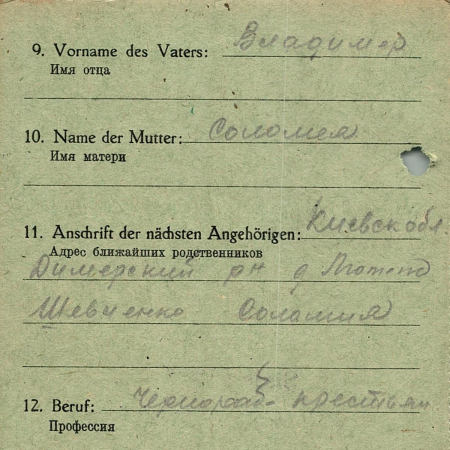 9. Vorname des Vaters: Владимер
Имя отца
10. Name der Mutter: Соломея
Имя матери
11. Anschrift der nächsten Angehörigen: Киевск обл.
Адрес ближайших родственников
Димерский рн д
Шевченко Соломия
12. Beruf: крестьян
Профессия